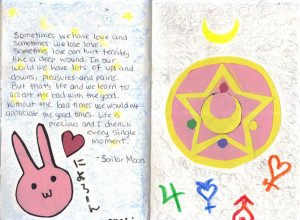 Sometimes we have love and
sometimes we lose love.
Sometimes love can hurt terribly
like a deep wound. In our
world we have lots of ups and
downs, pleasures and pains.
But thats life and we learn to
accept the bad with the good.
Without the bad times we would not
appreciate the good times. Life is
precious and I cherish
every single
moment.
- Sailor Moon